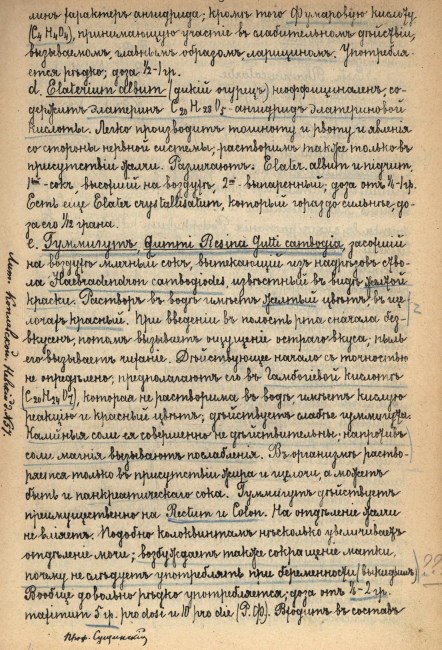 минъ характеръ ангидрида; кромѣ того Фумаровую кислоту
(C4 H4O4), принимающую участіе въ слабительномъ дѣйствіи,
вызываемомъ, главнымъ образомъ, ларициномъ. Употребля-
ется рѣдко; доза 1/2-1 гр.
d. Elaterium album (дикій огурецъ) неоффициналенъ; со-
держитъ Элатеринъ C20 H28 O5 - ангидридъ Элатериновой
кислоты. Легко производитъ тошноту и рвоту и явленія
со стороны нервной системы; растворимъ также только въ
присутствіи желчи. Различаютъ: Elater. album и nigrum,
1ый - сокъ, высохшій на воздухѣ, 2ой - выпаренный; доза отъ 1/2-1 гр.
Есть еще Elater crystallisatum, который гораздо сильнѣе, до-
за его 1/2 грана.
e. Гуммигутъ, Gummi Resina Gutti cambogia, засохшій
на воздухѣ млечный сокъ, вытекающій изъ надрѣзовъ ство-
ла Haebradendron cambogioides, извѣстный въ видѣ желтой
краски. Растворъ въ водѣ имѣетъ желтый цвѣтъ, въ ще-
лочахъ красный. При введеніи въ полость рта сначала без-
вкусенъ, потомъ вызываетъ ощущеніе остраго вкуса; пыль
его вызываетъ чиханіе. Дѣйствующее начало съ точностью
не опредѣлено; предполагаютъ его въ Гамбогіевой кислотѣ
(C20 H24 O4), которая не растворима въ водѣ, имѣетъ кислую
реакцію и красный цвѣтъ; дѣйствуетъ слабѣе гуммигута.
Калійныя соли ея совершенно не дѣйствительны, напротивъ
соли магнія вызываютъ послабленія. Въ организмѣ раство-
ряется только въ присутствіи жира и щелочи, а можетъ
быть и панкреатическаго сока. Гуммигутъ дѣйствуетъ
преимущественно на Rectum и Colon. На отдѣленіе желчи
не вліяетъ. Подобно колоквинтамъ нѣсколько увеличиваетъ
отдѣленіе мочи; возбуждаетъ также сокращеніе матки,
почему не слѣдуетъ употреблять при беременности (выкидышъ)
Вообще довольно рѣдко употребляется; доза отъ 1/2-2 gr.
maximum 5 gr. pro dosi и 10 pro die (Р. Ф.). Входитъ въ составъ
Проф. Сущинскій
Лит. Невскій
??